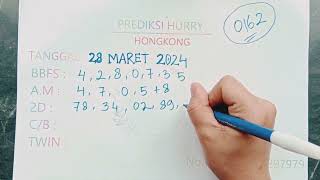 PREDIKSI HURRY
0162
HONGKONG
TANGGAL 28 MARET 2024
BBFS : 4, 2, 8, 0, 7, 3 5
A.M : 4, 7, 0, 5 + 8
2D : 78, 34, 02, 89,
C/B :
TWIN
No
297979